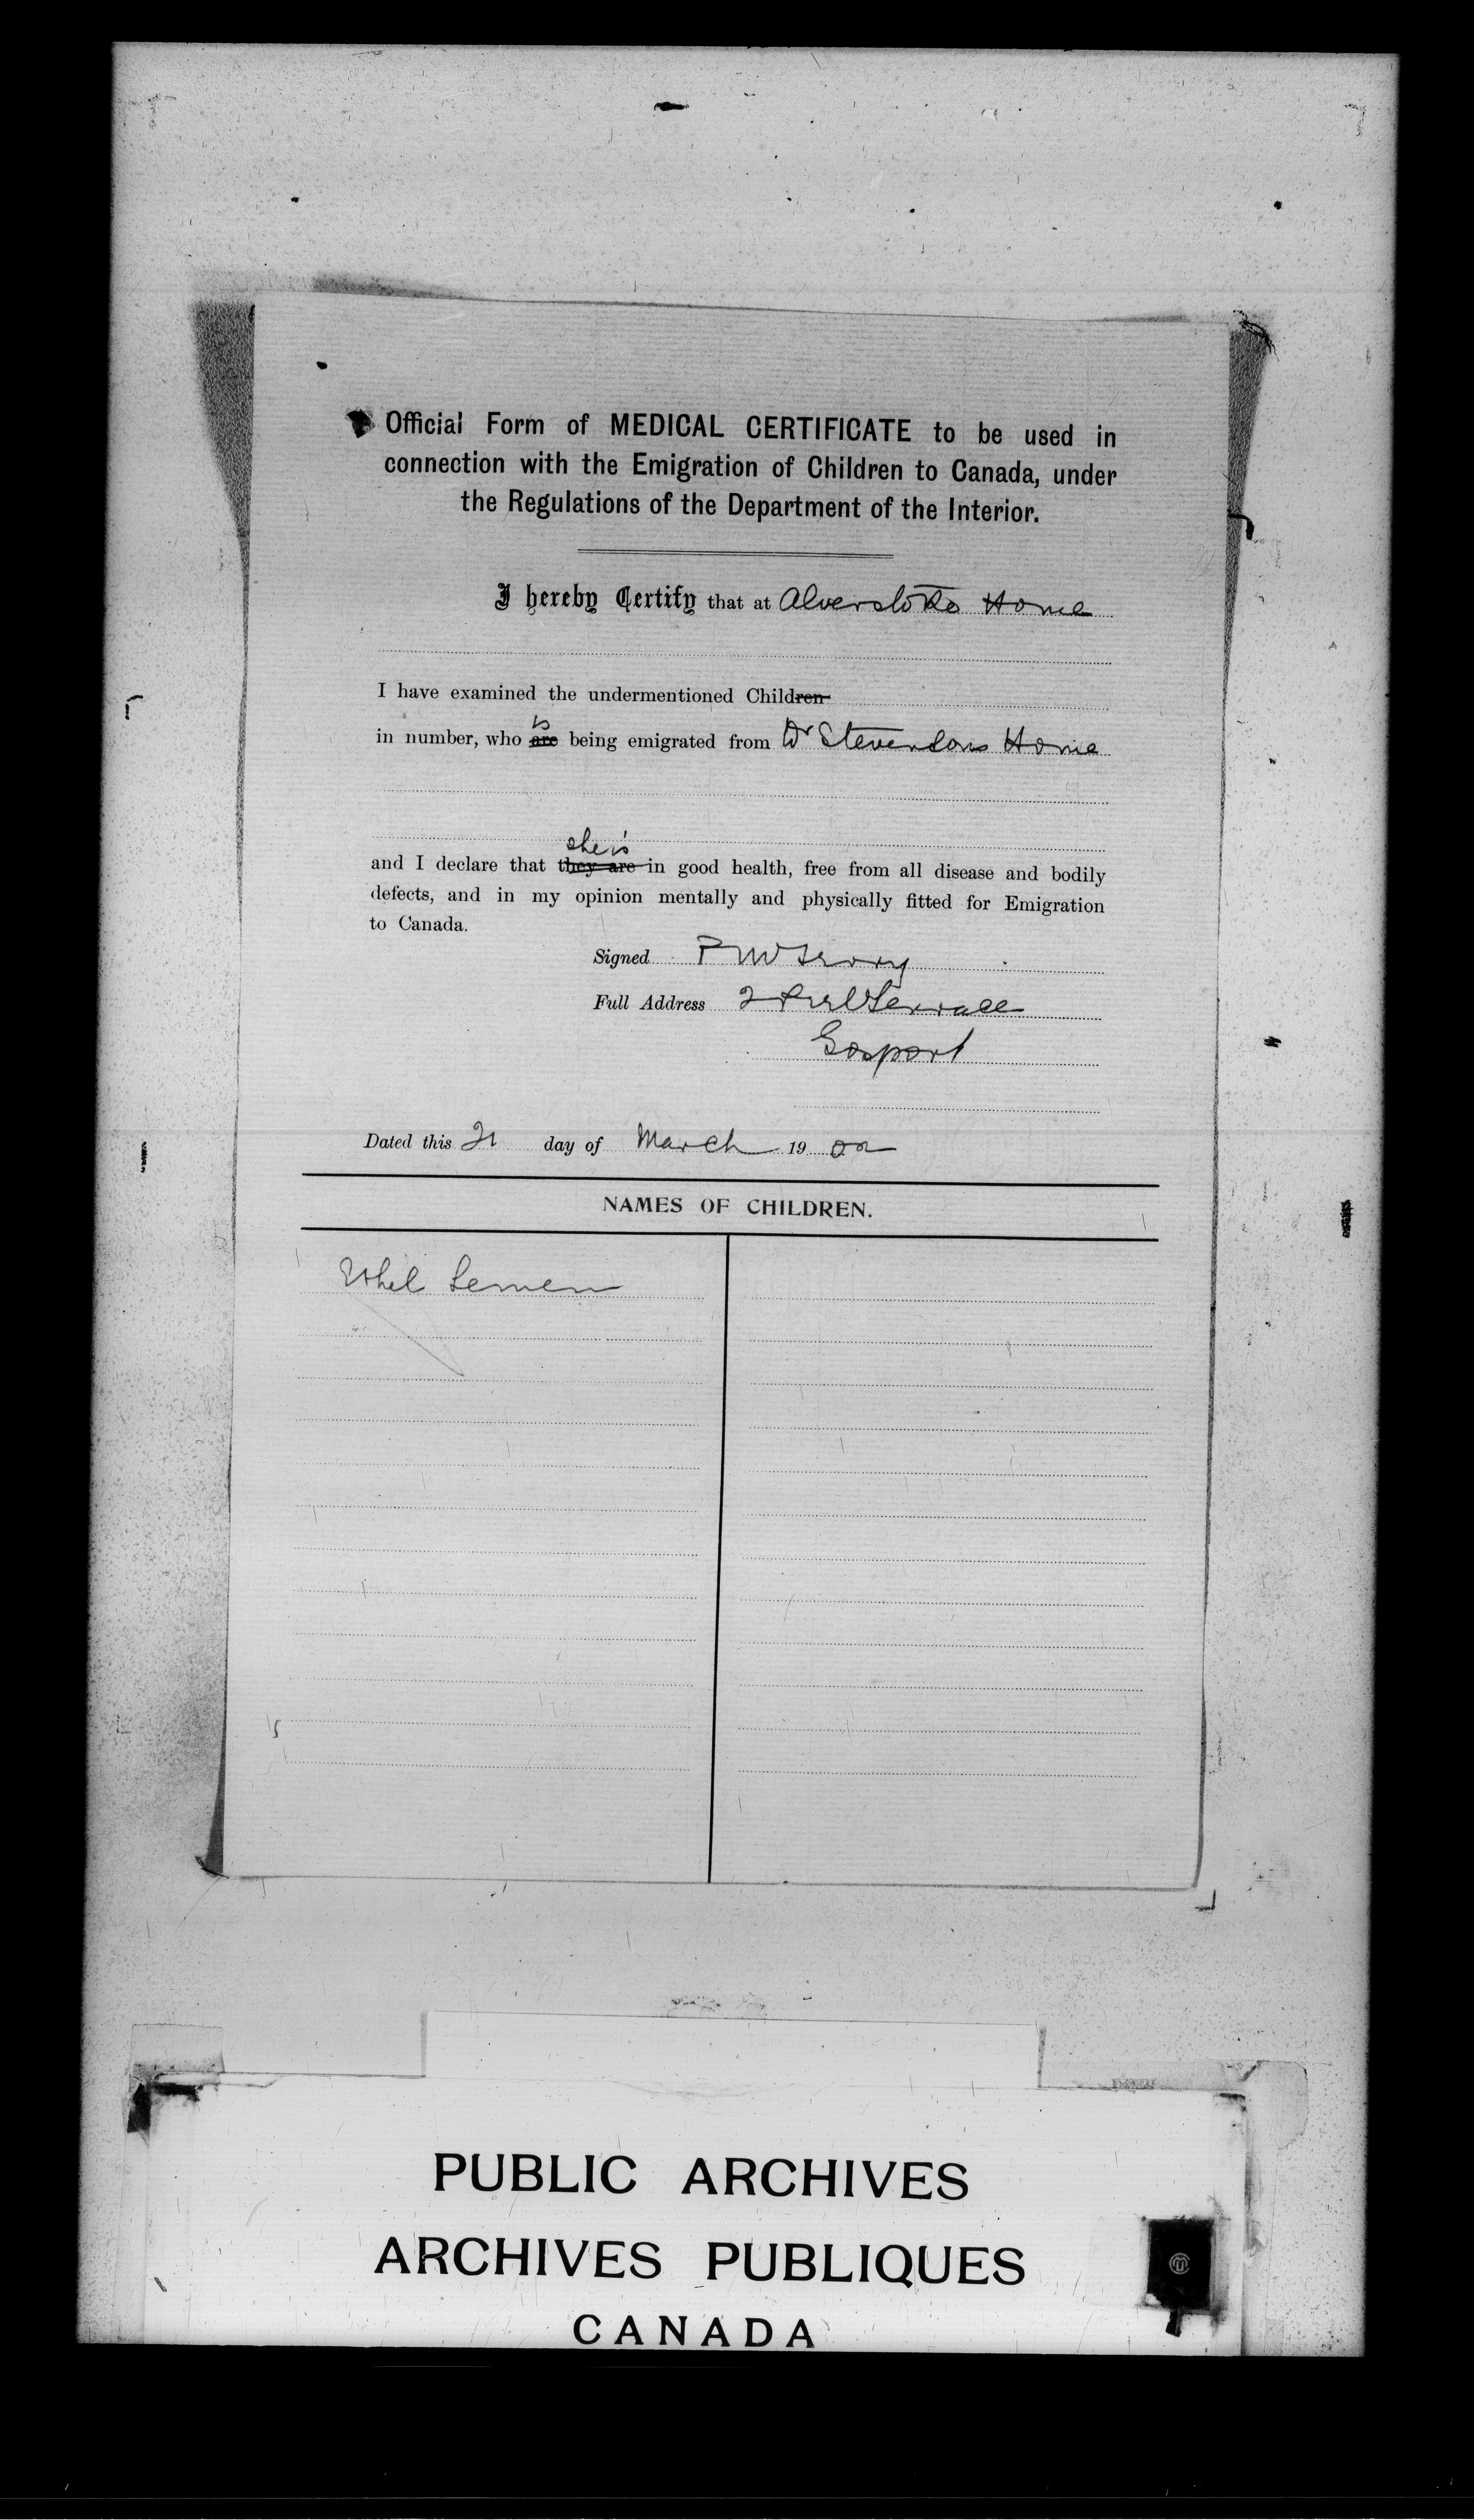 Official Form of MEDICAL CERTIFICATE to be used in
connection with the Emigration of Children to Canada, under
the Regulations of the Department of the Interior.
I hereby Certify that at Alverstoke Home
I have examined the undermentioned Children
is
in number, who are being emigrated from Dr Stevensons Home
she is
and I declare that they are in good health, free from all disease and bodily
defects, and in my opinion mentally and physically fitted for Emigration
to Canada.
Signed
Full Address 2 Terrace
Gosport
Dated this 21 day of March 1902
NAMES OF CHILDREN.
Ethel
PUBLIC ARCHIVES
ARCHIVES PUBLIQUES
CANADA